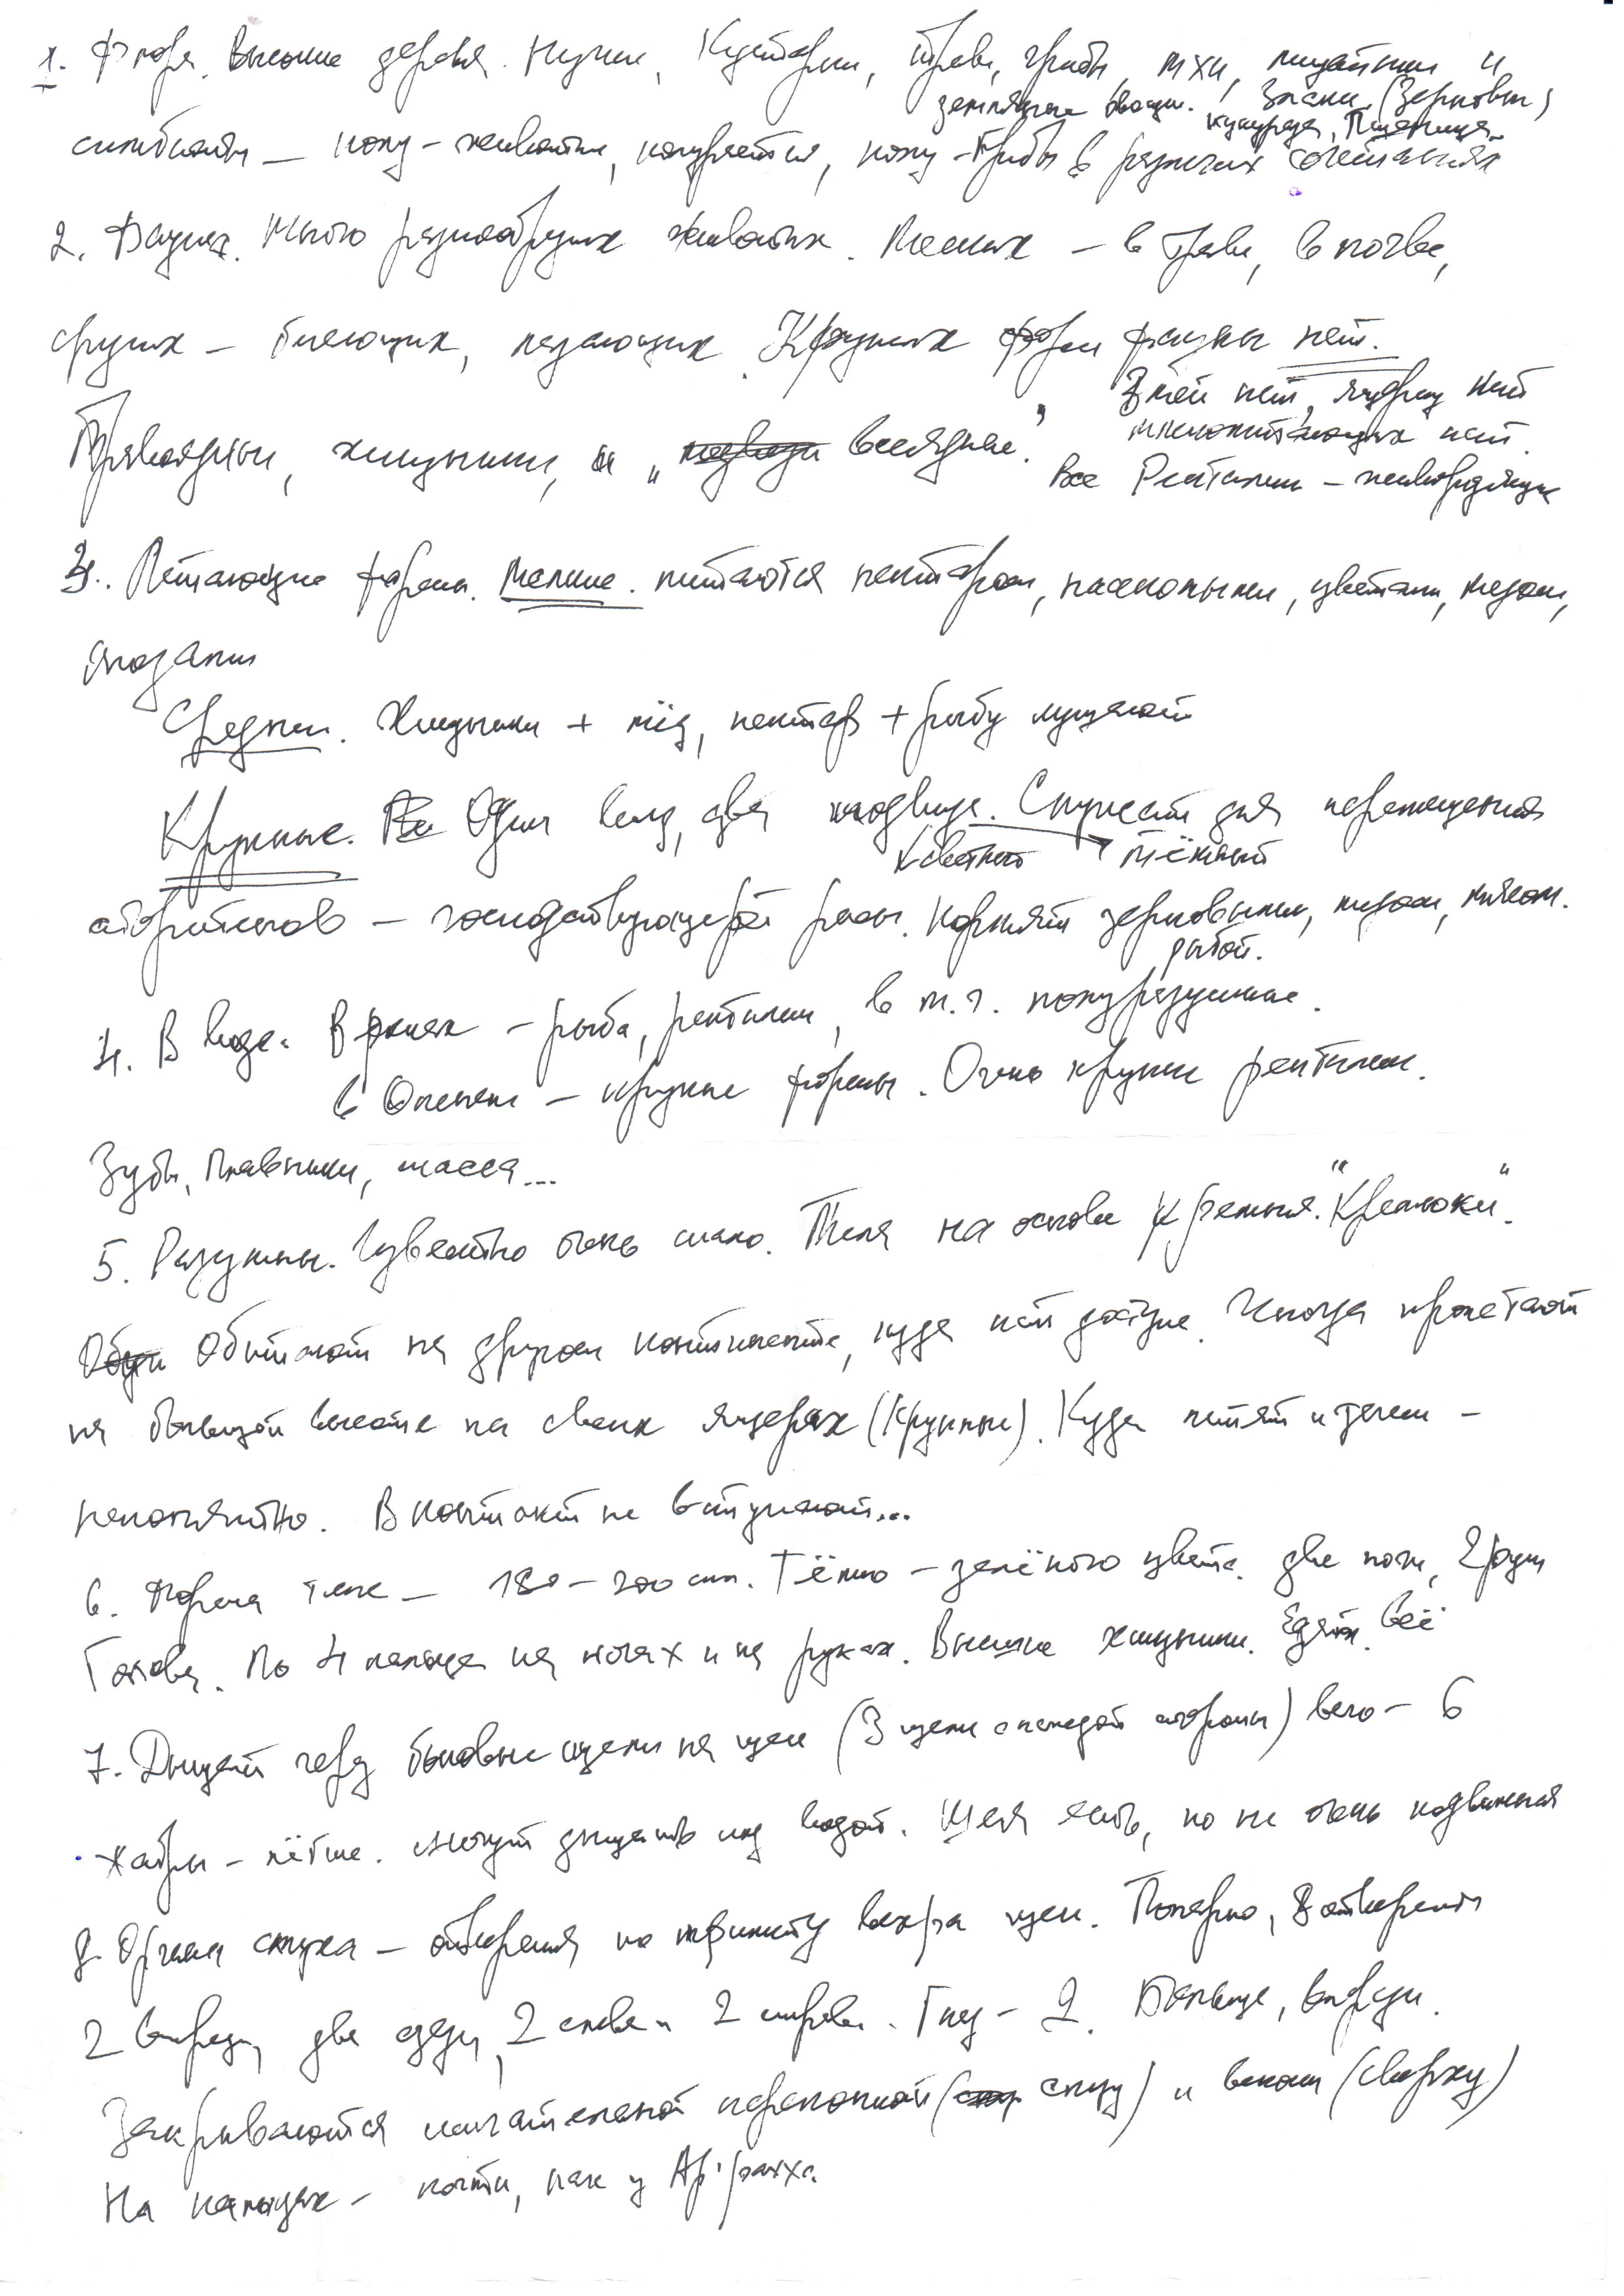 1. Флора. Высокие деревья. Кусты, Кустарники, трава, грибы, мхи, лишайники и
земляные овощи. Злаки (Зерновые)
кукуруза, Пшеница.
симбионты — полу-животные, полурастения, полу-грибы в разных сочетаниях
2. Фауна. Много разнообразных животных. Мелких — в траве, в почве,
других — бегающих, лазающих. Крупных форм фауны нет.
Змей нет, ящериц нет
Травоядные, хищники, и „всеядные".
млекопитающих нет.
Все Рептилии — живородящие
3. Летающие формы. Мелкие. питаются нектаром, насекомыми, цветами, медом,
плодами
Средние. Хищники + мёд, нектар + рыбу
Крупные. Один вид, два подвида. Служат для перемещения
светлый тёмный
аборигенов — господствующей расы. Кормят зерновыми, медом, мясом.
рыбой.
4. В воде. В реках — рыба, рептилии, в т.ч. полуразумные.
в Океане — крупные формы. Очень крупные рептилии.
Зубы, Плавники, масса...
5. Разумны. Известно очень мало. Тела на основе кремния. "Кремлоки".
Обитают на другом континенте, куда нет доступа. Иногда пролетают
на большой высоте на своих ящерах (крупных). Куда летят и зачем —
непонятно. В контакт не вступают...
6. Форма тела — 180–200 см. Тёмно-зелёного цвета. две ноги, 2 руки
Голова. По 4 пальца на ногах и на руках. Высшие хищники. Едят всё
7. Дышат через боковые щели на шее (3 щели с каждой стороны) всего — 6
Жабры — лёгкие. Могут дышать под водой. Шея есть, но не очень подвижная
8. Органы слуха — отверстия по периметру вокруг шеи. Попарно, 8 отверстий
2 впереди, две сзади, 2 слева и 2 справа. Глаз — 2. Большие, впереди.
Закрываются мигательной перепонкой (снизу) и веком (сверху)
На пальцах — когти, как у Ар'рахха.